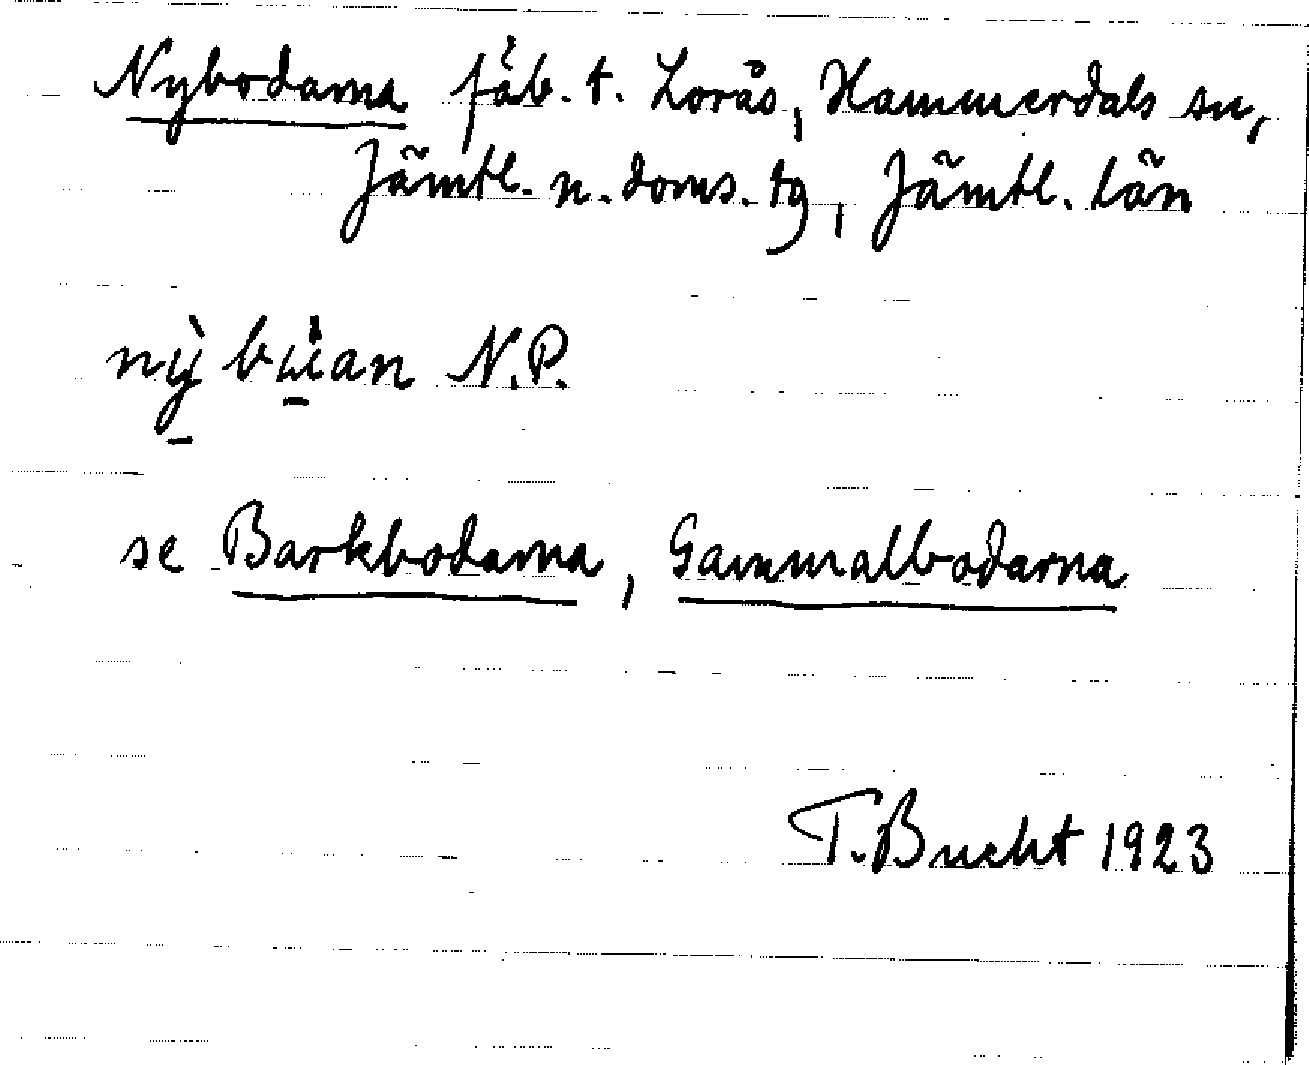 Nybodarna fäb. t. Lorås, Hammerdals sn,
Jämtl. n. doms. tg, Jämtl. län
nỳ bùan N.P.
se Barkbodarna, Gammalbodarna
T. Bucht 1923